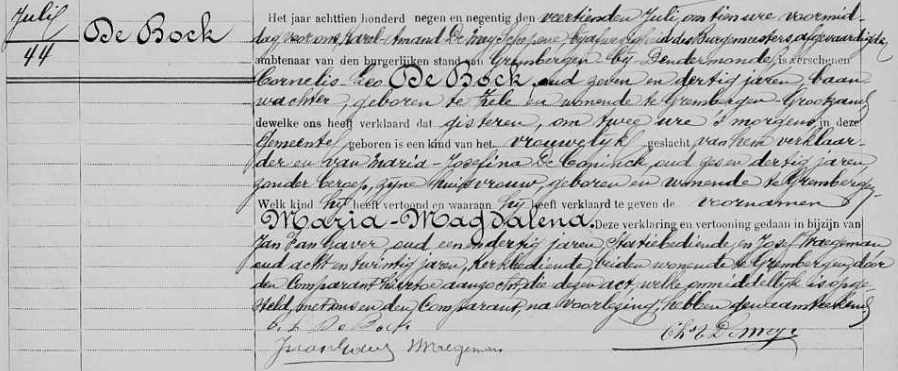 Julij
44
De Bock
Het jaar achttien honderd negen en negentig den veertienden Julij om tien ure voormid-
dag voor ons Karel-Amand De Meij Schepene bij afwezigheid des Burgmeesters afgevaardigde
ambtenaar van den burgerlijken stand van Grembergen bij Dendermonde, is verschenen
Cornelis-Leo De Bock, oud zeven en dertig jaren, baan
wachter, geboren te Zele en wonende te Grembergen-Grootzand
dewelke ons heeft verklaard dat gisteren, om twee ure 's morgens, in deze
Gemeente geboren is een kind van het vrouwelijk geslacht, van hem verklaar-
der en van Maria-Josefina De Coninck, oud zes en dertig jaren,
zonder beroep, zijne huisvrouw, geboren en wonende te Grembergen
Welk kind hij heeft vertoond en waaraan hij heeft verklaard te geven de voornamen
Maria-Magdalena. Deze verklaring en vertooning gedaan in bijzijn van
Jan Van haver, oud een en dertig jaren, Statiebediende, en Josef Waegeman
oud acht en twintig jaren, Kerkbediende, beiden wonende te Grembergen, door
den Comparant hiertoe aangezocht, die dezen act, welke onmiddellijk is opge-
steld, met ons en den Comparant, na voorlezing, hebben genaamteekend,
C. L. De Bock
Ch. A. De Meij
J. Vanhaver Waegeman